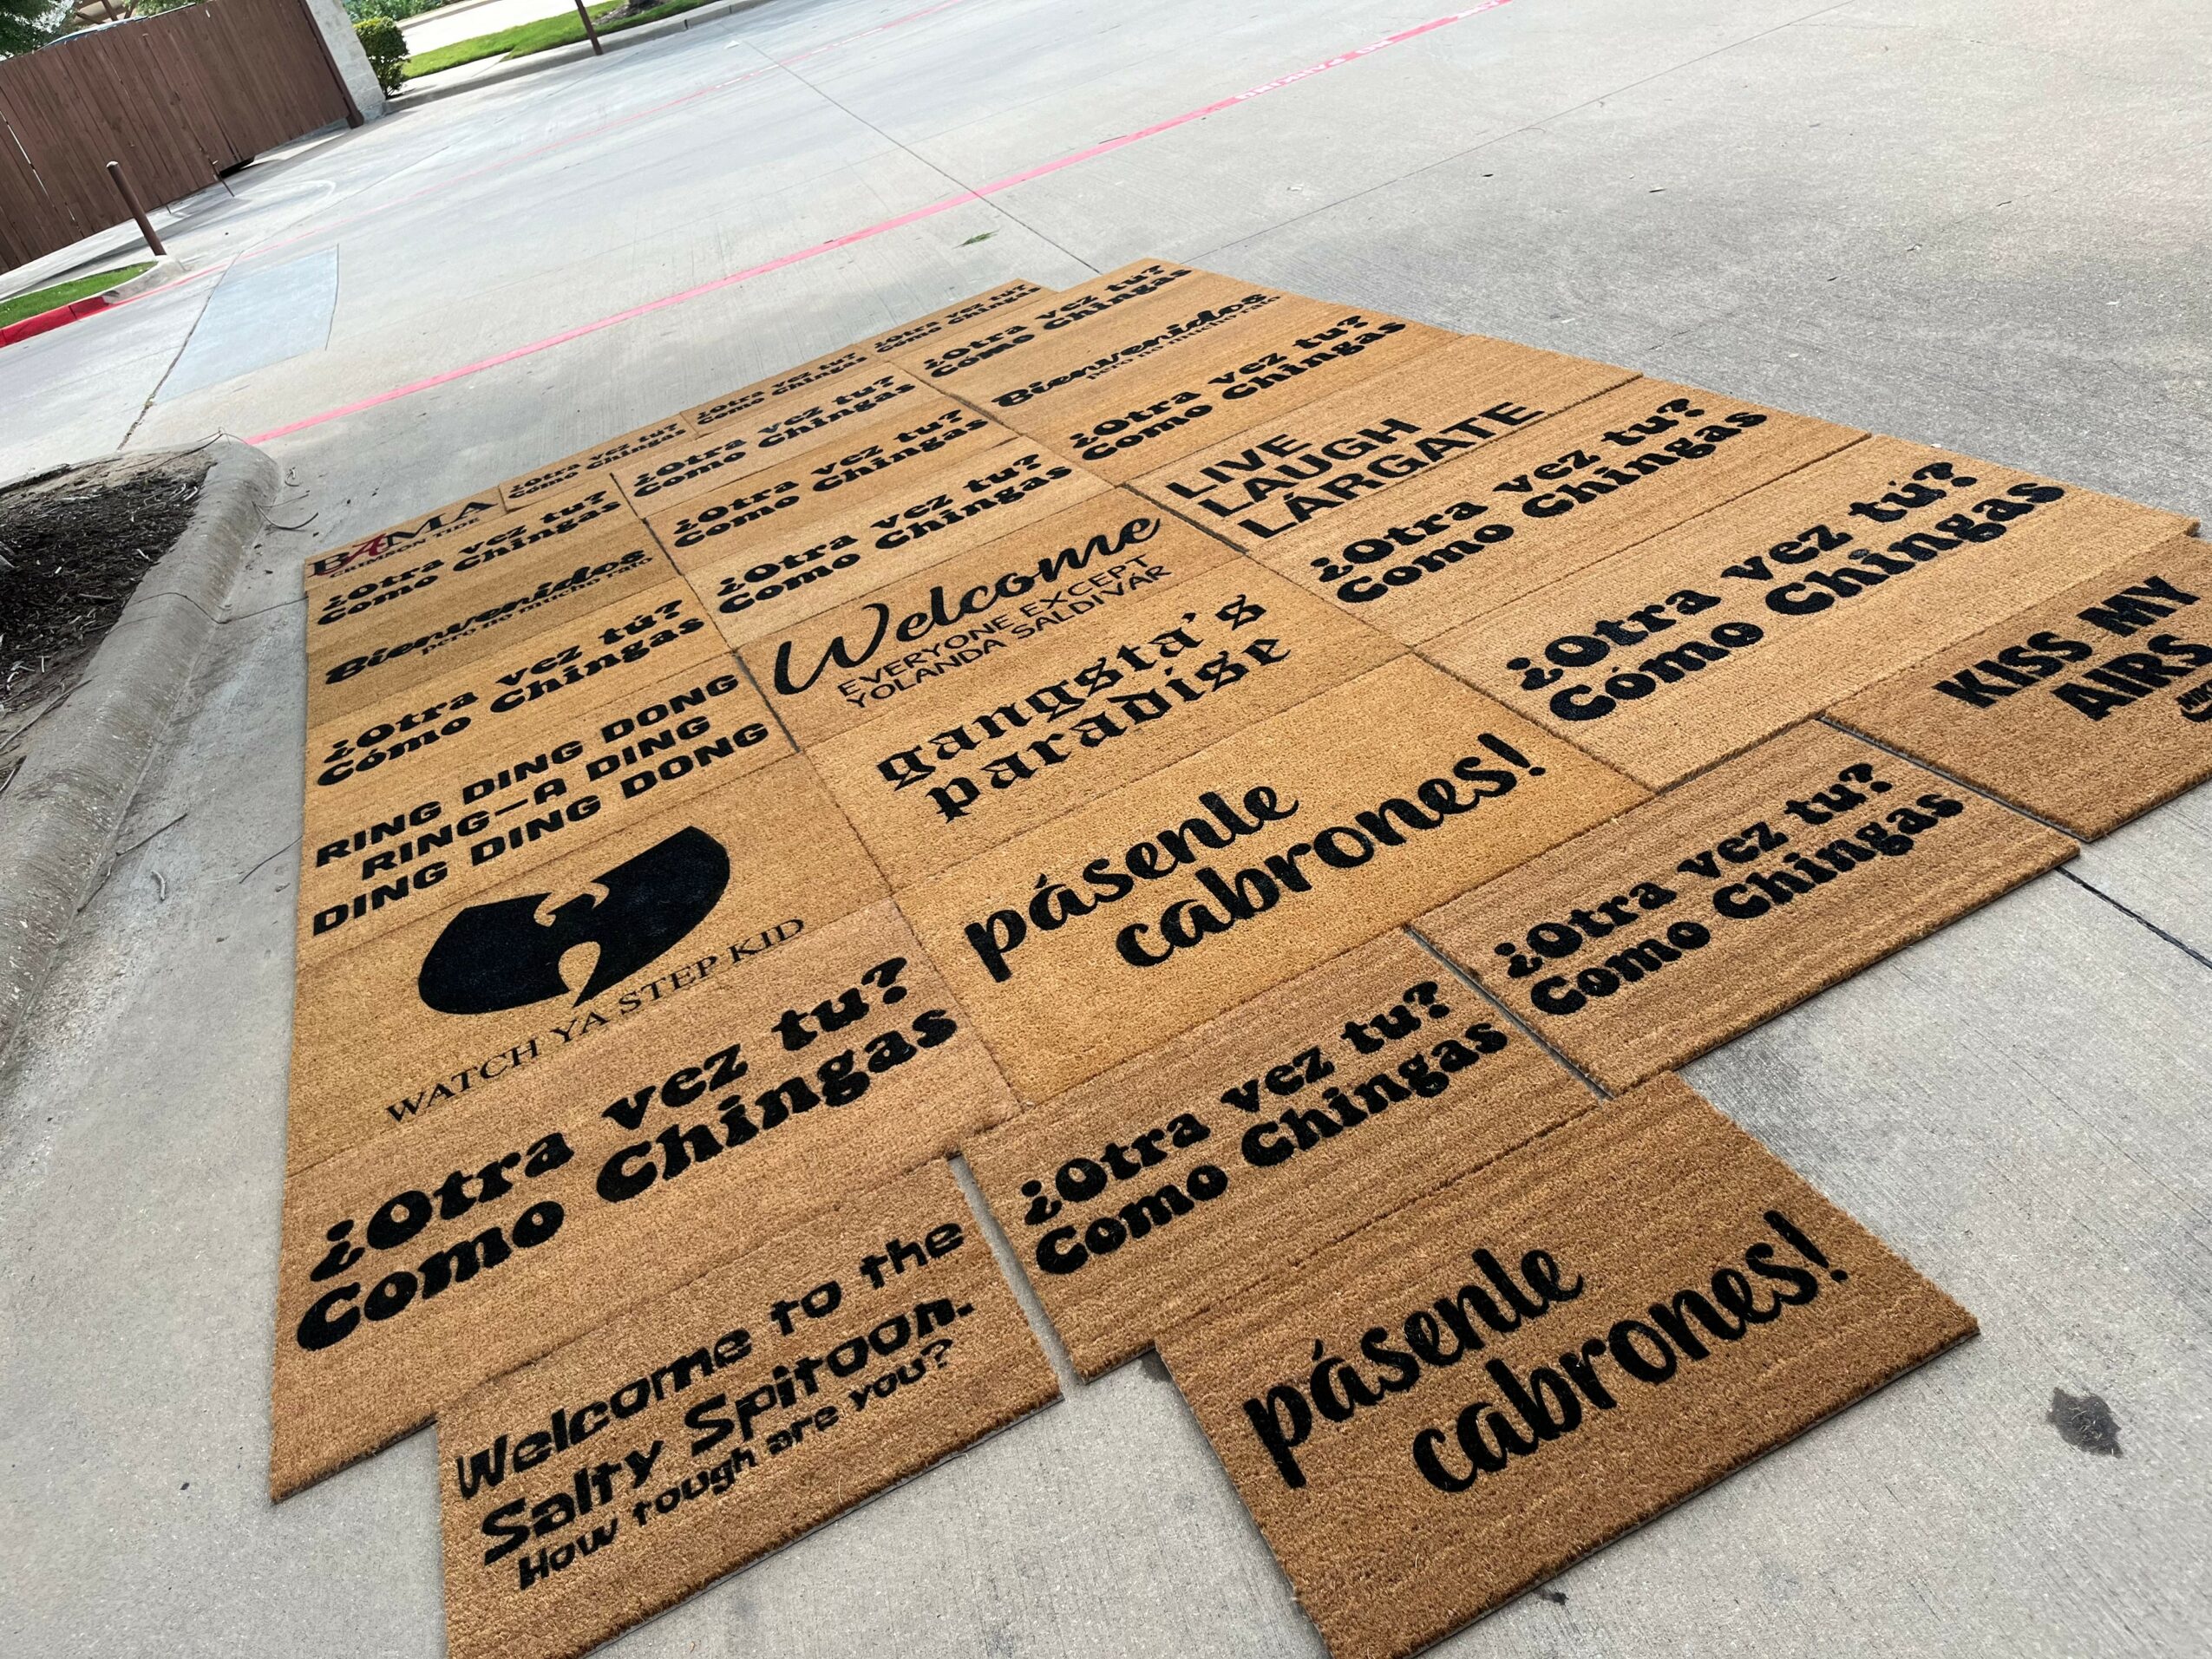 NO PARKING
¿Otra vez tu?
Como Chingas
¿Otra vez tu?
Como Chingas
¿Otra vez tu?
Como Chingas
BAMA
CRIMSON TIDE
¿Otra vez tu?
Como Chingas
¿Otra vez tu?
Como Chingas
¿Otra vez tu?
Cómo Chingas
Bienvenidos
pero no mucho rato
¿Otra vez tu?
Como Chingas
¿Otra vez tu?
Como Chingas
Bienvenidos
pero no mucho rato
¿Otra vez tú?
Cómo Chingas
¿Otra vez tu?
Como Chingas
LIVE
LAUGH
LÁRGATE
RING DING DONG
RING-A DING
DING DING DONG
Welcome
EVERYONE EXCEPT
YOLANDA SALDIVAR
¿Otra vez tu?
Como Chingas
WATCH YA STEP KID
gangsta's
paradise
¿Otra vez tú?
Cómo Chingas
¿Otra vez tu?
Como Chingas
pásenle
cabrones!
KISS MY
AIRS
¿Otra vez tu?
Como Chingas
¿Otra vez tu?
Como Chingas
Welcome to the
Salty Spitoon.
How tough are you?
pásenle
cabrones!